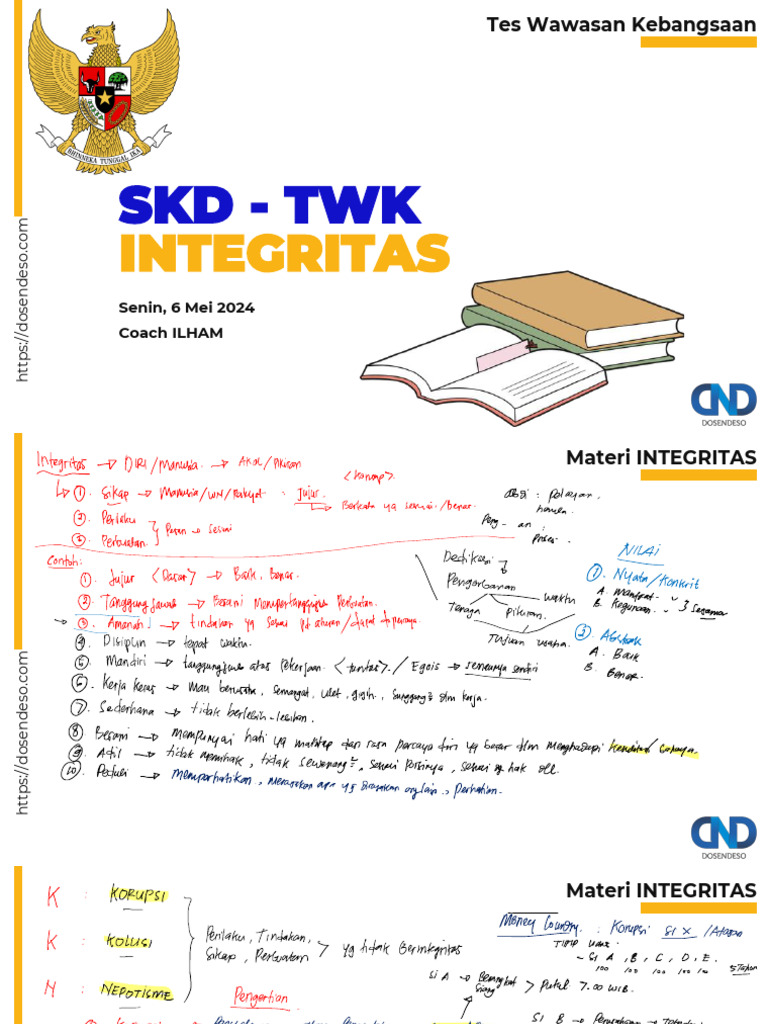 Tes Wawasan Kebangsaan
BHINNEKA TUNGGAL IKA
SKD - TWK
INTEGRITAS
Senin, 6 Mei 2024
Coach ILHAM
https://dosendeso.com
DND
DOSENDESO
Materi INTEGRITAS
Integritas → DIRI/Manusia → Akal/Pikiran
<Konsep>
① Sikap → Manusia/WN/Rakyat : Jujur
② Perilaku
③ Perbuatan
Contoh:
① Jujur <Dasar> → Baik, Benar.
② Tanggung Jawab → Berani Mempertanggung Perbuatan.
③ Amanah → tindakan yg sesuai
④ Disiplin → tepat waktu.
⑤ Mandiri → tanggung jawab atas pekerjaan. <tuntas>./ Egois → semaunya sendiri
⑥ Kerja keras → Mau berusaha, Semangat, ulet, gigih, dlm kerja.
⑦ Sederhana → tidak berlebih-lebihan.
⑧ Berani → mempunyai hati yg mantap dan rasa percaya diri yg besar dlm menghadapi
⑨ Adil → tidak memihak, tidak sewenang², sesuai hak dll.
⑩ Peduli → memperhatikan, merasakan apa yg dirasakan org lain, perhatian.
Dedikasi
Pengorbanan
Tenaga
Pikiran
waktu
NILAI
① Nyata/Konkrit
A. Manfaat
B. Kegunaan
② Abstrak
A. Baik
B. Benar
https://dosendeso.com
DND
DOSENDESO
Materi INTEGRITAS
K : KORUPSI
K : KOLUSI
N : NEPOTISME
Perilaku, Tindakan,
Sikap, Perbuatan > yg tidak Berintegritas
Pengertian
: Korupsi Si X /
- Si A, B, C, D, E.
100 100 100 100 100
5 Tahun
Si A → Berangkat Siang > Pukul 7.00 WIB.
Si B → Perusahaan →